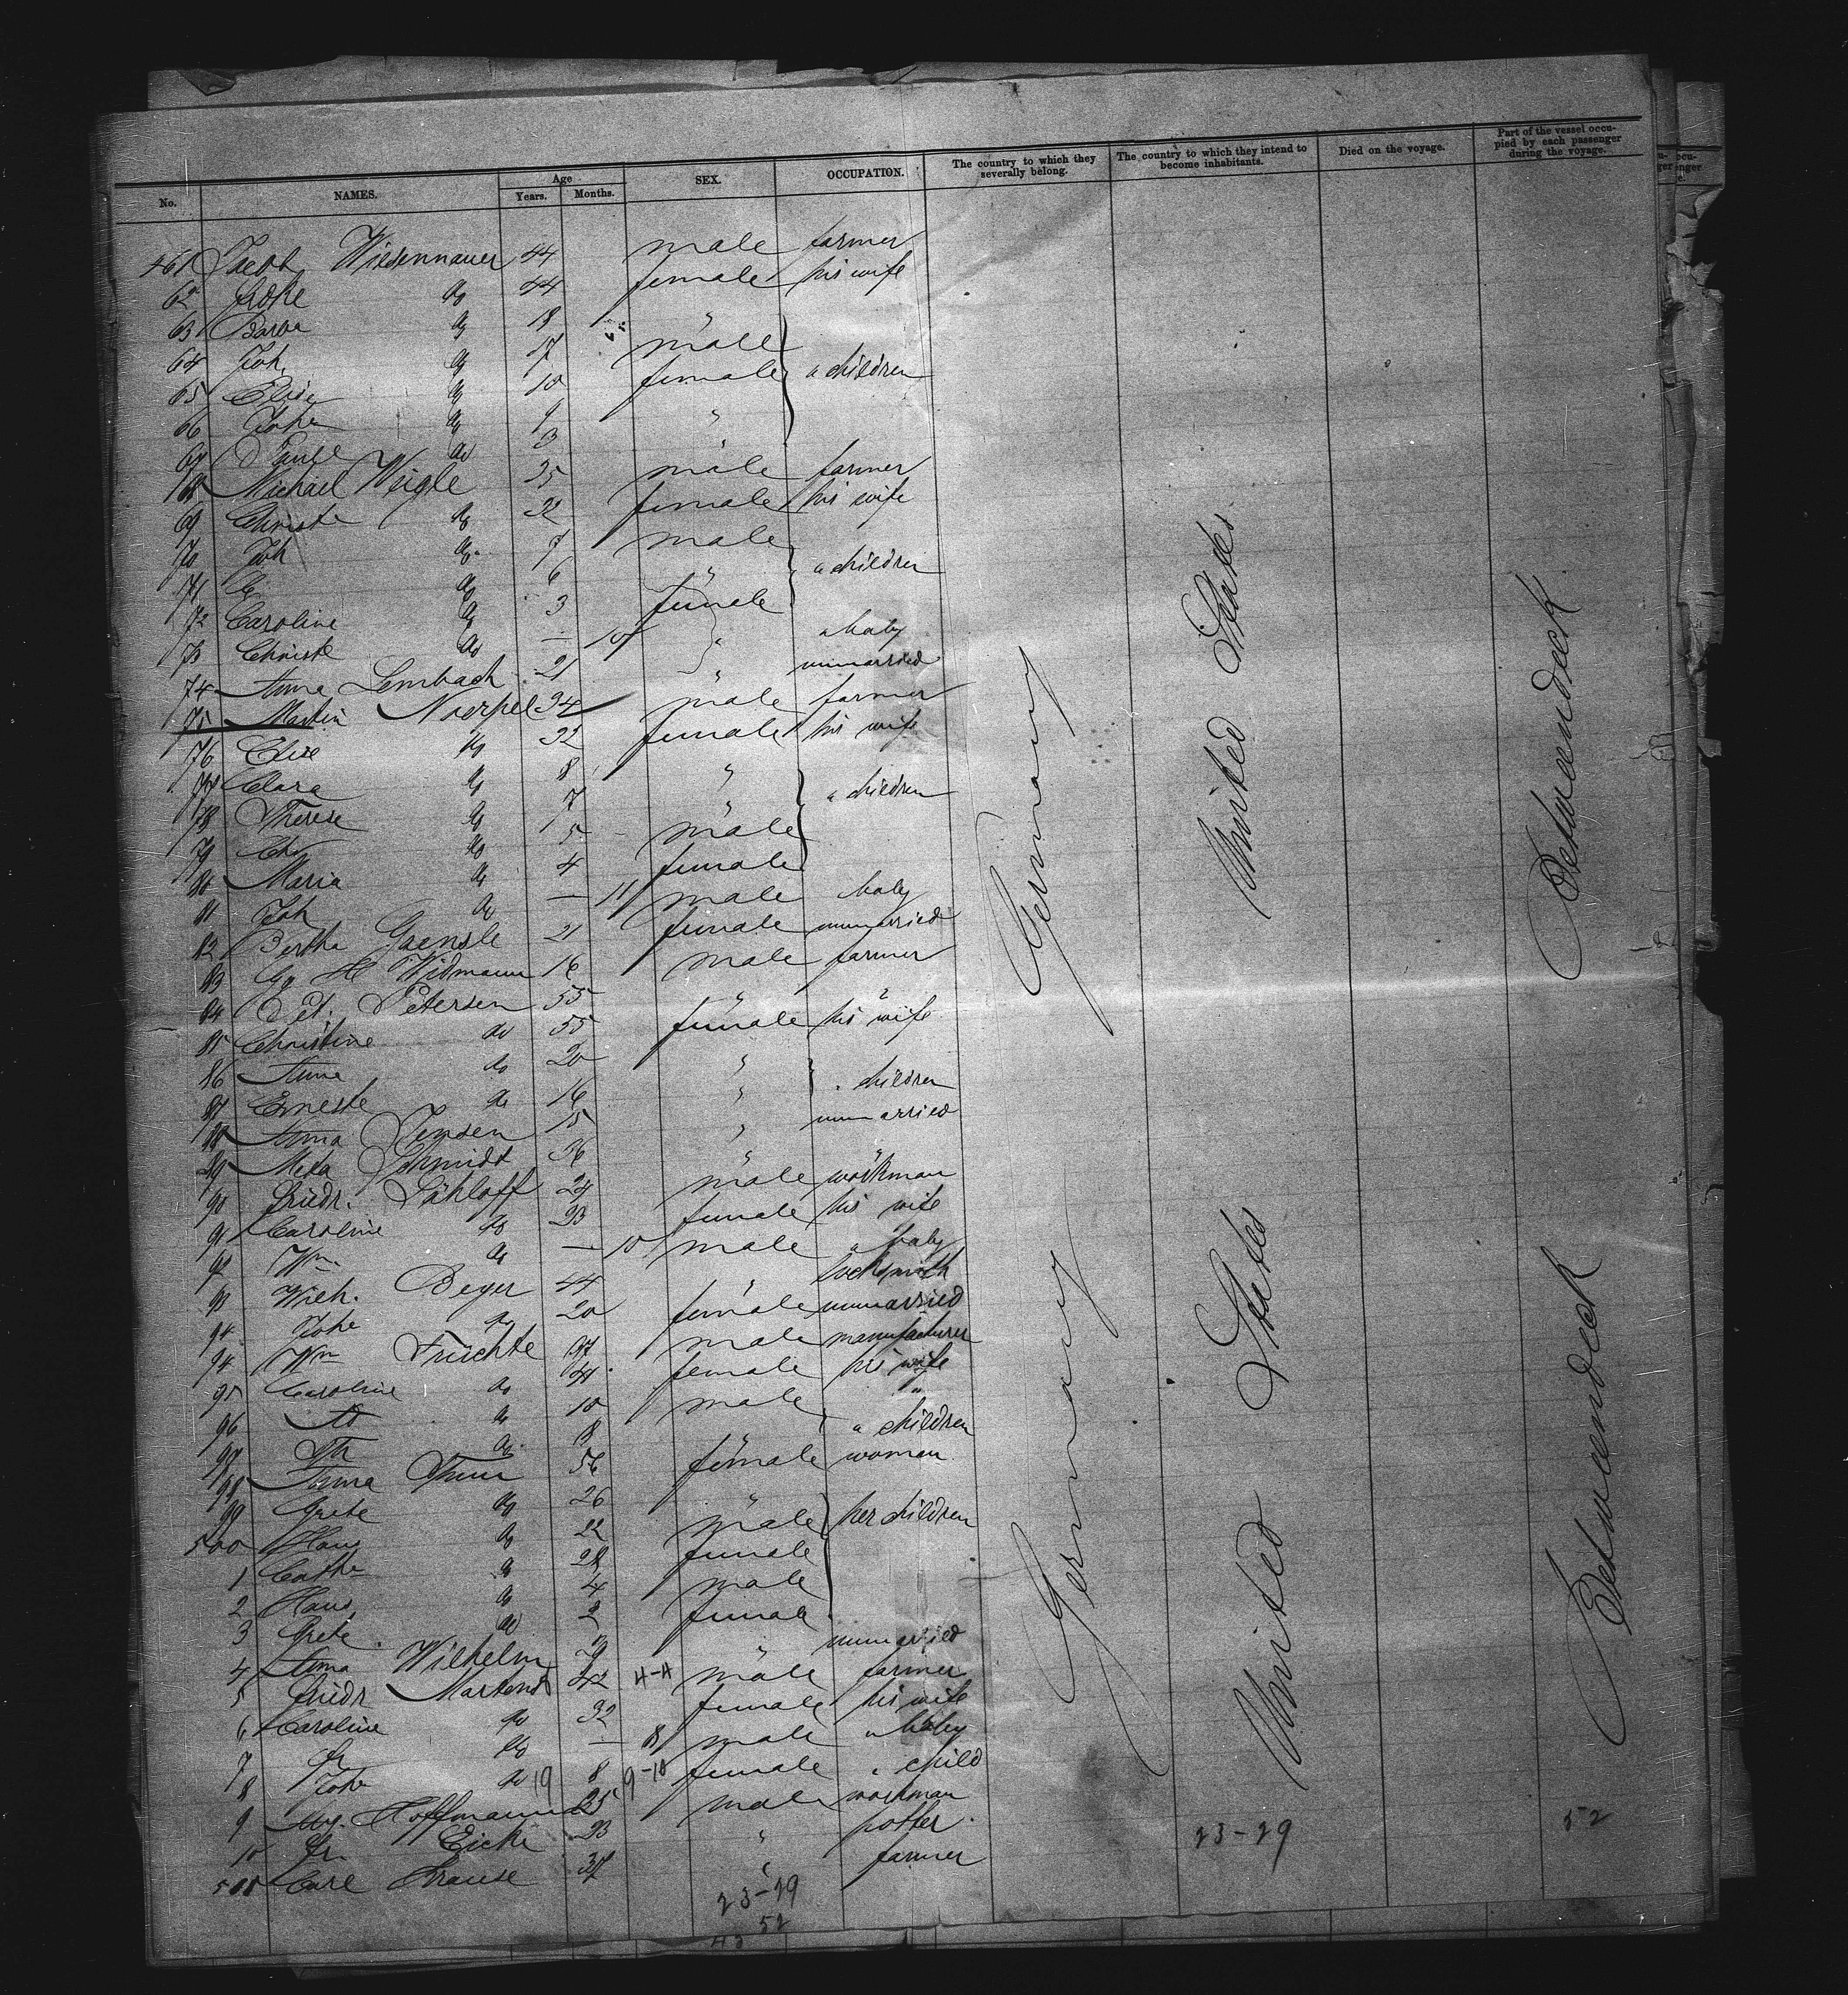 No. NAMES. Age Years. Months. SEX. OCCUPATION. The country to which they severally belong. The country to which they intend to become inhabitants. Died on the voyage. Part of the vessel occupied by each passenger during the voyage.
461 Jacob Wiedennauer 44 male farmer
62 do 44 female his wife
63 Barba do 18 "
64 Joh. do 17 male
65 Elise do 10 female " children
66 Johe do 9 "
67 do 3
68 Michael Weigle 35 male farmer
69 Christe do 32 female his wife
70 Joh do 7 male
71 do 6 " " children
72 Caroline do 3 female
73 Christe do — 10 " " baby
74 Anna Lembach 21 " unmarried
75 Martin Noerpel 34 male farmer
76 Elise do 32 female his wife
77 Clara do 8 "
78 Therese do 7 " " children
79 Chr do 5 male
80 Maria do 4 female
81 Joh do — 11 male baby
82 Bertha Gaensle 21 female unmarried
83 Widmann 16 male farmer
84 Pet. Petersen 55 " "
85 Christine do 55 female his wife
86 Anna do 20 "
87 Erneste do 16 " " children
88 Anna Jensen 15 " unmarried
89 Meta Schmidt 26 " "
90 Friedr. 24 male workman
91 Caroline do 23 female his wife
92 Wm do — 10 male " baby
93 Wilh. Beyer 44 " locksmith
94 Johe do 20 female unmarried
94 Wm Früchte 47 male manufacturer
95 Caroline do 41 female his wife
96 do 10 male "
97 do 8 " " children
98 Anna Thun 56 female woman
99 Grete do 26 "
500 Hans do 22 male her children
1 Cathe do 28 female
2 Hans do 4 male
3 Grete do 2 female
4 Anna Wilhelm 19 " unmarried
5 Friedr Martens 42 4-4 male farmer
6 Caroline do 32 female his wife
7 Fr do — 8 male " baby
8 Johe do 19 8 9-10 female " child
9 Aug. Hoffmann 25 male workman
10 Fr. Eicke 23 " potter
511 Carl Krause 37 " farmer
Germany
United States
Betweendeck
Germany
United States
Betweendeck
23-29
52
23-29
52